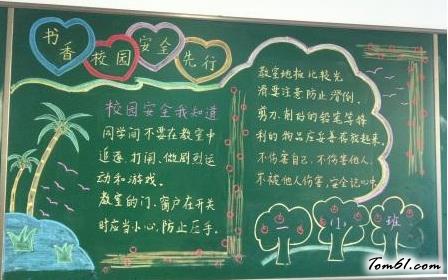 书香校园安全先行
校园安全我知道
同学间不要在教室中
追逐、打闹、做剧烈运
动和游戏。
教室的门、窗户在开关
时应当小心,防止压手。
教室地板比较光
滑要注意防止滑倒。
剪刀、削好的铅笔等锋
利的物品应妥善存放起来。
不伤害自己,不伤害他人,
不被他人伤害,安全记心中
一(1)班
Tom61.com